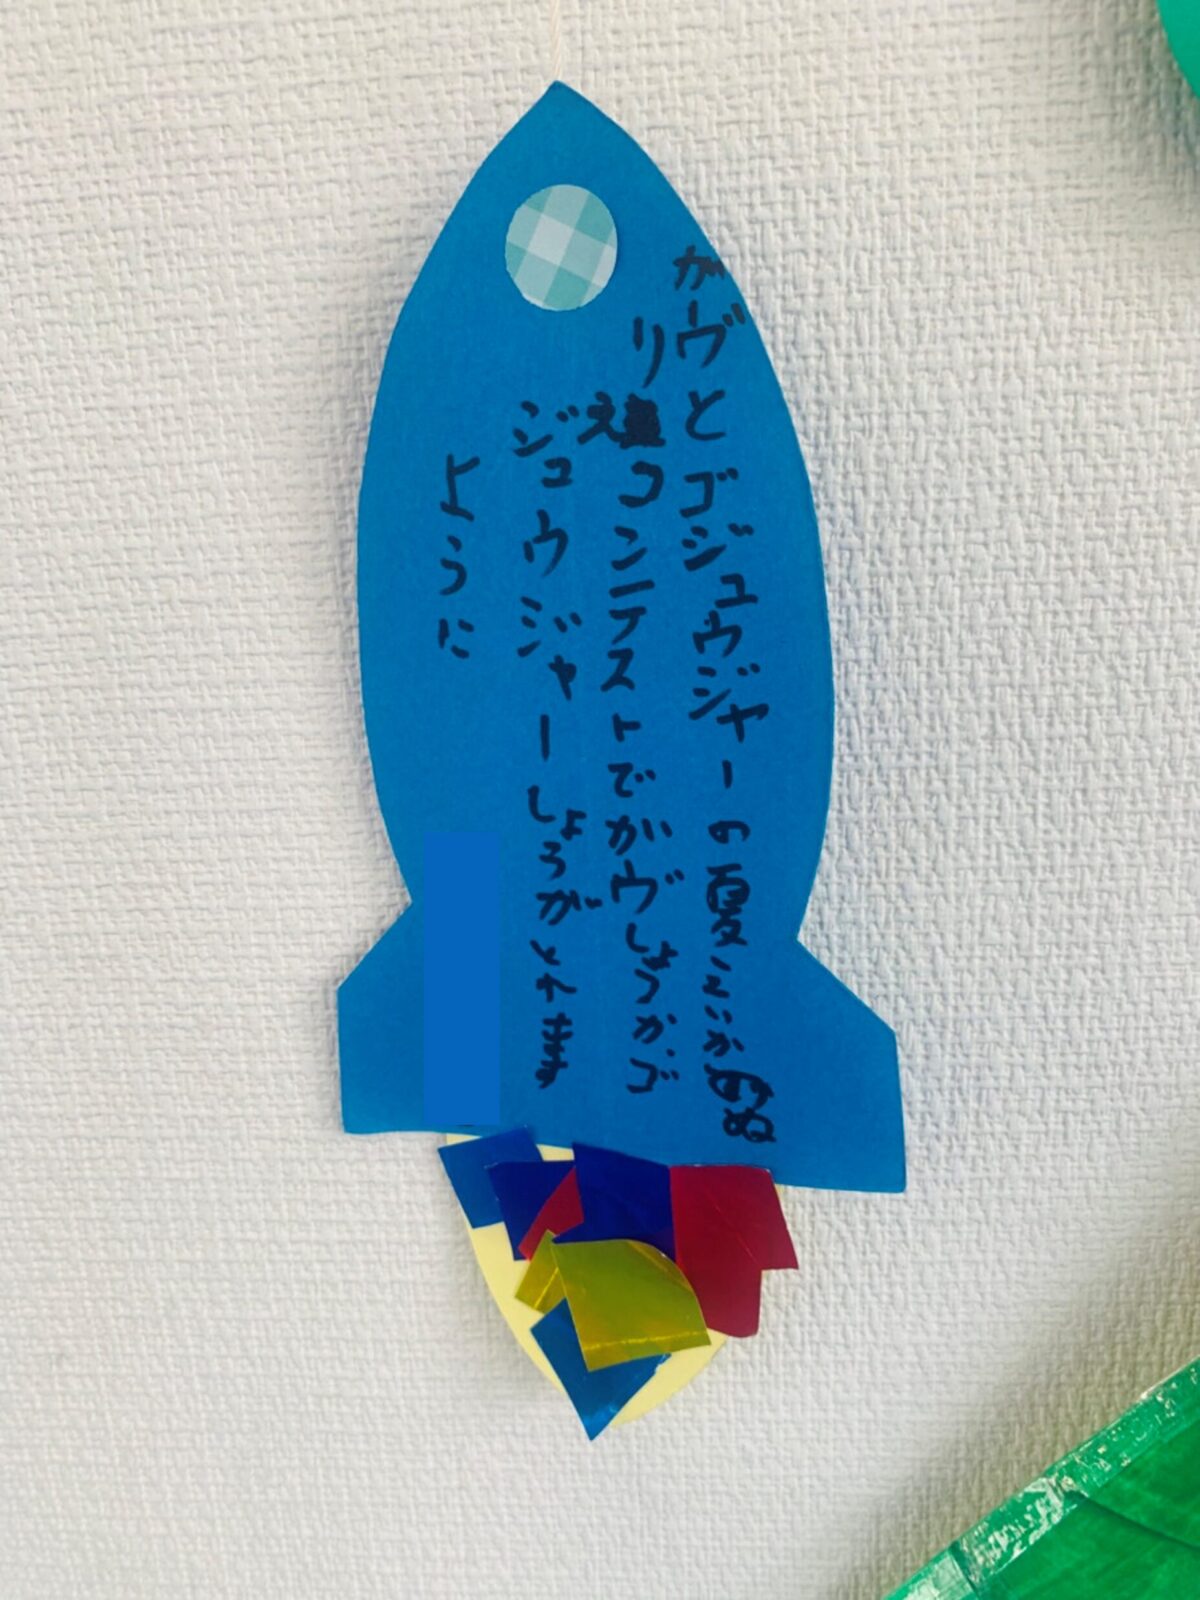 ガヴとゴジュウジャーの夏えいがぬ
りえコンテストでガヴしょうかゴ
ジュウジャーしょうがとれます
ように